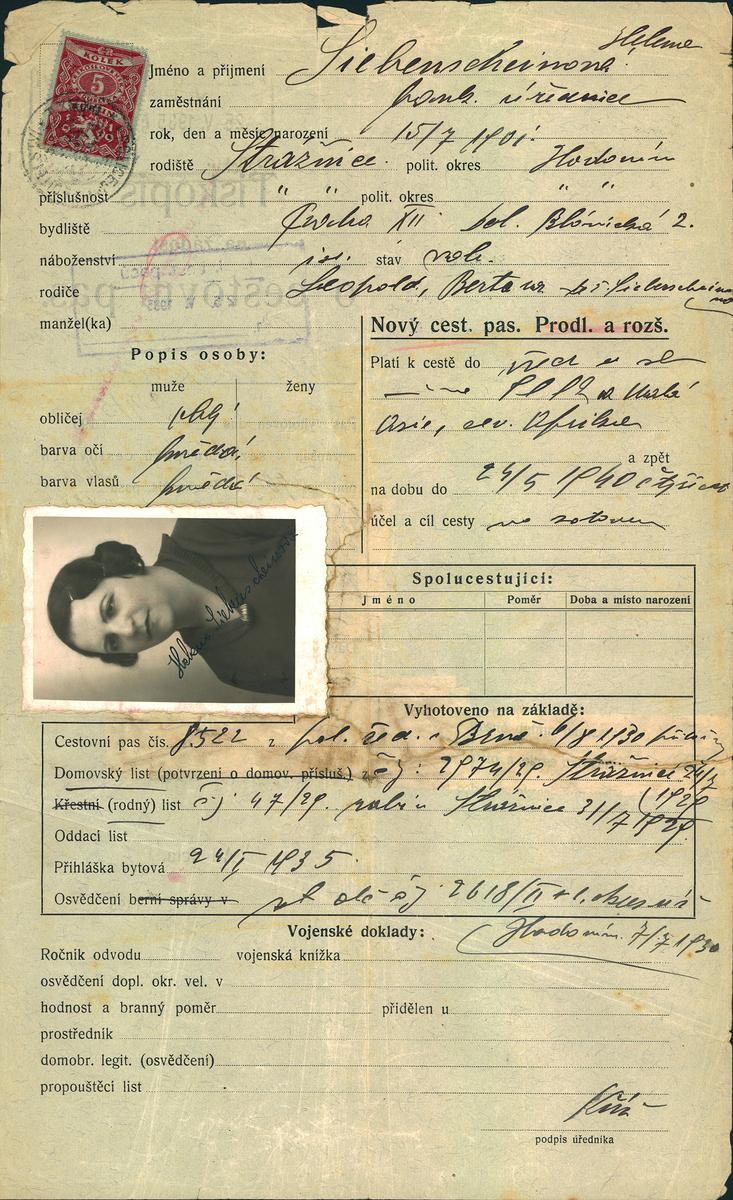 KOLEK
5
Jméno a přijmení Siebenscheinova Helena
zaměstnání bank. úřednice
rok, den a měsíc narození 15/7 1901.
rodiště Strážnice. polit. okres Hodonín
příslušnost " " polit. okres " "
bydliště Praha XII
náboženství isr. stav svob.
rodiče Leopold, Berta
manžel(ka)
Popis osoby:
muže ženy
obličej
barva očí hnědá
barva vlasů hnědé
Nový cest. pas. Prodl. a rozš.
Platí k cestě do
Asie, sev. Afrika
a zpět
na dobu do 24/5 1940
účel a cíl cesty
Helena Siebenscheinová
Spolucestující:
Jméno Poměr Doba a místo narození
Vyhotoveno na základě:
Cestovní pas čís. 8522 z pol. řed. v Brně 6/8 1930
Domovský list (potvrzení o domov. přísluš.) z čj: 2974/29. Strážnice 24/7 1929
Křestní (rodný) list čj 47/29. rabín Strážnice 31/7 1929.
Oddací list
Přihláška bytová 24/I 1935.
Osvědčení berní správy v čj 2618/II
Hodonín 7/7 1930
Vojenské doklady:
Ročník odvodu vojenská knížka
osvědčení dopl. okr. vel. v
hodnost a branný poměr přidělen u
prostředník
domobr. legit. (osvědčení)
propouštěcí list
podpis úředníka